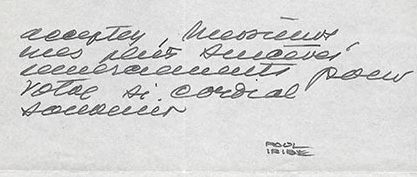 acceptez, Messieurs,
mes plus sincères
remerciements pour
votre si cordial
souvenir
PAUL
IRIBE